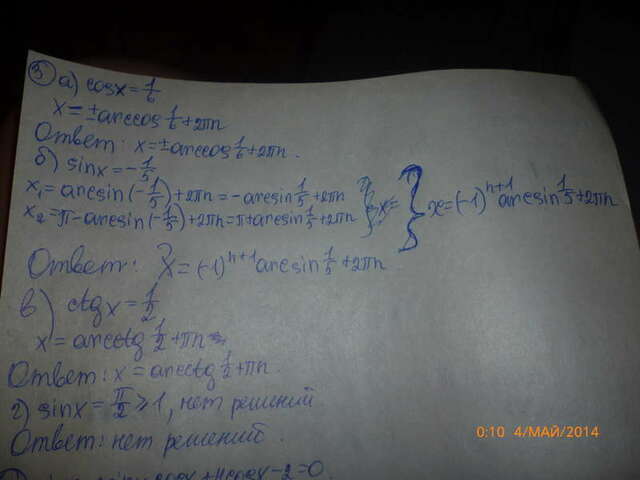 ③ а) cosx = 1/6
x = ±arccos 1/6 + 2πn
Ответ: x = ±arccos 1/6 + 2πn.
б) sinx = -1/5
x₁ = arcsin(-1/5) + 2πn = -arcsin 1/5 + 2πn
x₂ = π - arcsin(-1/5) + 2πn = π + arcsin 1/5 + 2πn } x = { x = (-1)ⁿ⁺¹ arcsin 1/5 + 2πn
Ответ: x = (-1)ⁿ⁺¹ arcsin 1/5 + 2πn
в) ctgx = 1/2
x = arcctg 1/2 + πn
Ответ: x = arcctg 1/2 + πn.
г) sinx = π/2 ⩾ 1, нет решений.
Ответ: нет решений.
cosx + 4cosx - 2 = 0.
0:10 4/МАЙ/2014